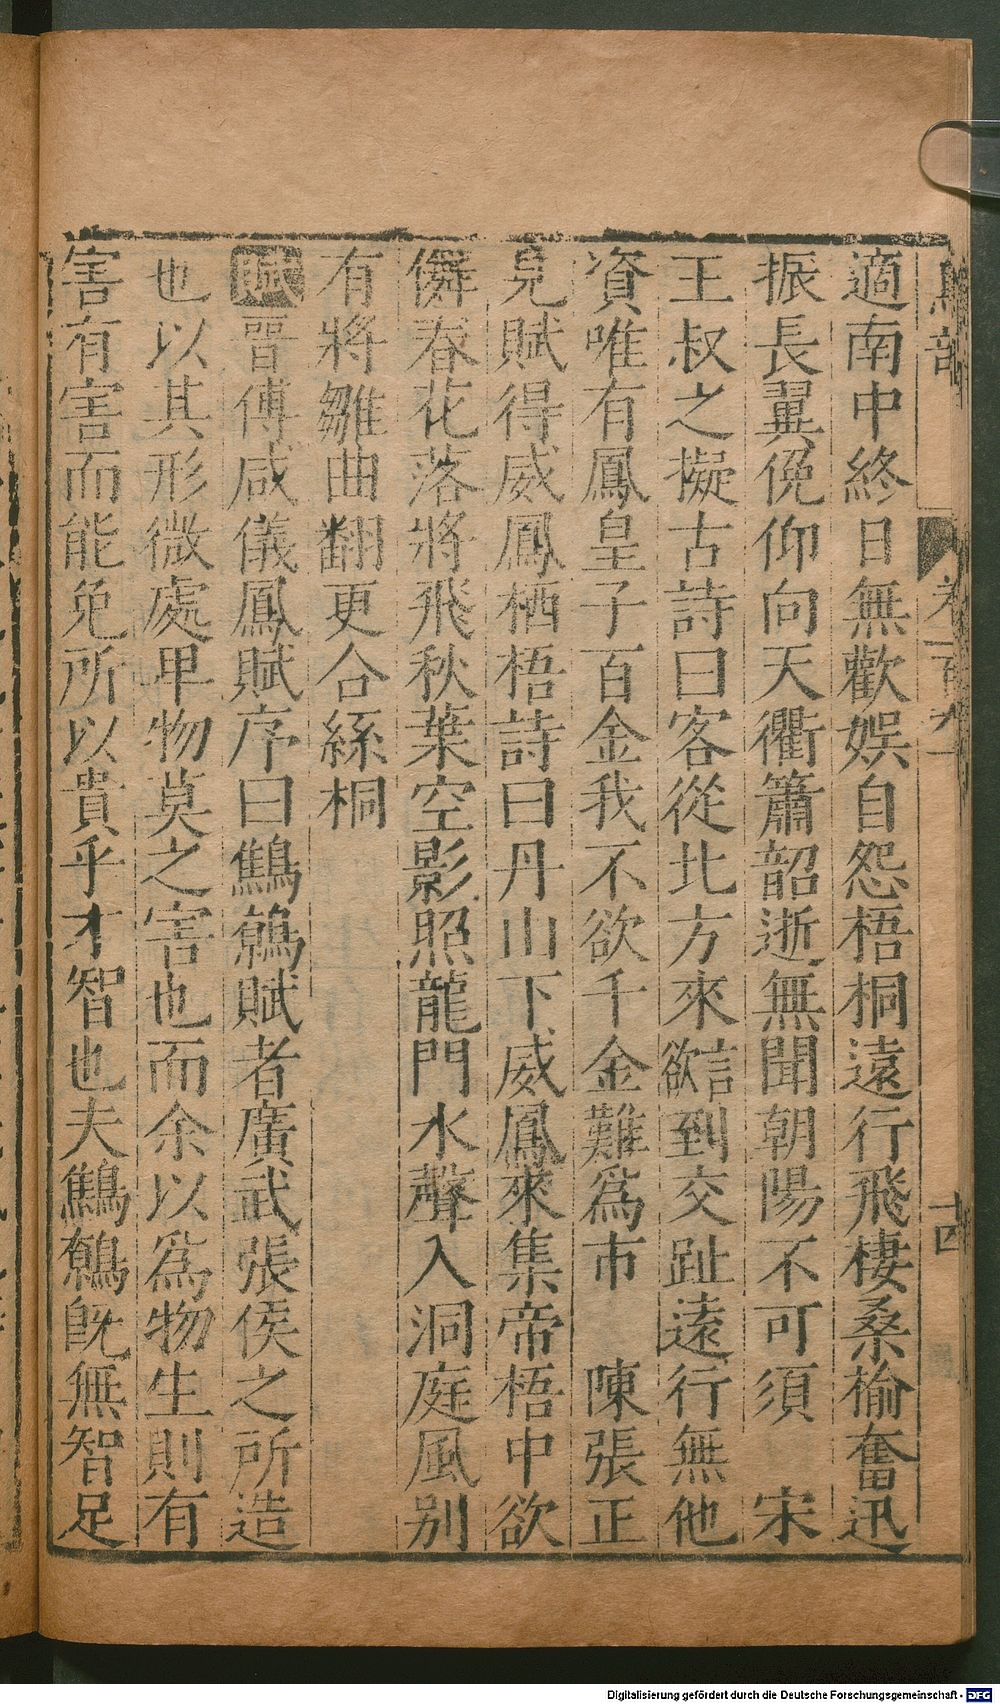 適南中終日無歡娛自怨梧桐遠行飛棲桑榆奮迅
振長翼俛仰向天衢簫韶逝無聞朝陽不可須　宋
王叔之擬古詩曰客從北方來言欲到交趾遠行無他
資唯有鳳皇子百金我不欲千金難爲市　陳張正
見賦得威鳳栖梧詩曰丹山下威鳳來集帝梧中欲
儛春花落將飛秋葉空影照龍門水聲入洞庭風別
有將雛曲翻更合絲桐
賦晉傅咸儀鳳賦序曰鷦鷯賦者廣武張侯之所造
也以其形微處卑物莫之害也而余以爲物生則有
害有害而能免所以貴乎才智也夫鷦鷯既無智足
鳥部
卷一百九
十四
Digitalisierung gefördert durch die Deutsche Forschungsgemeinschaft - DFG